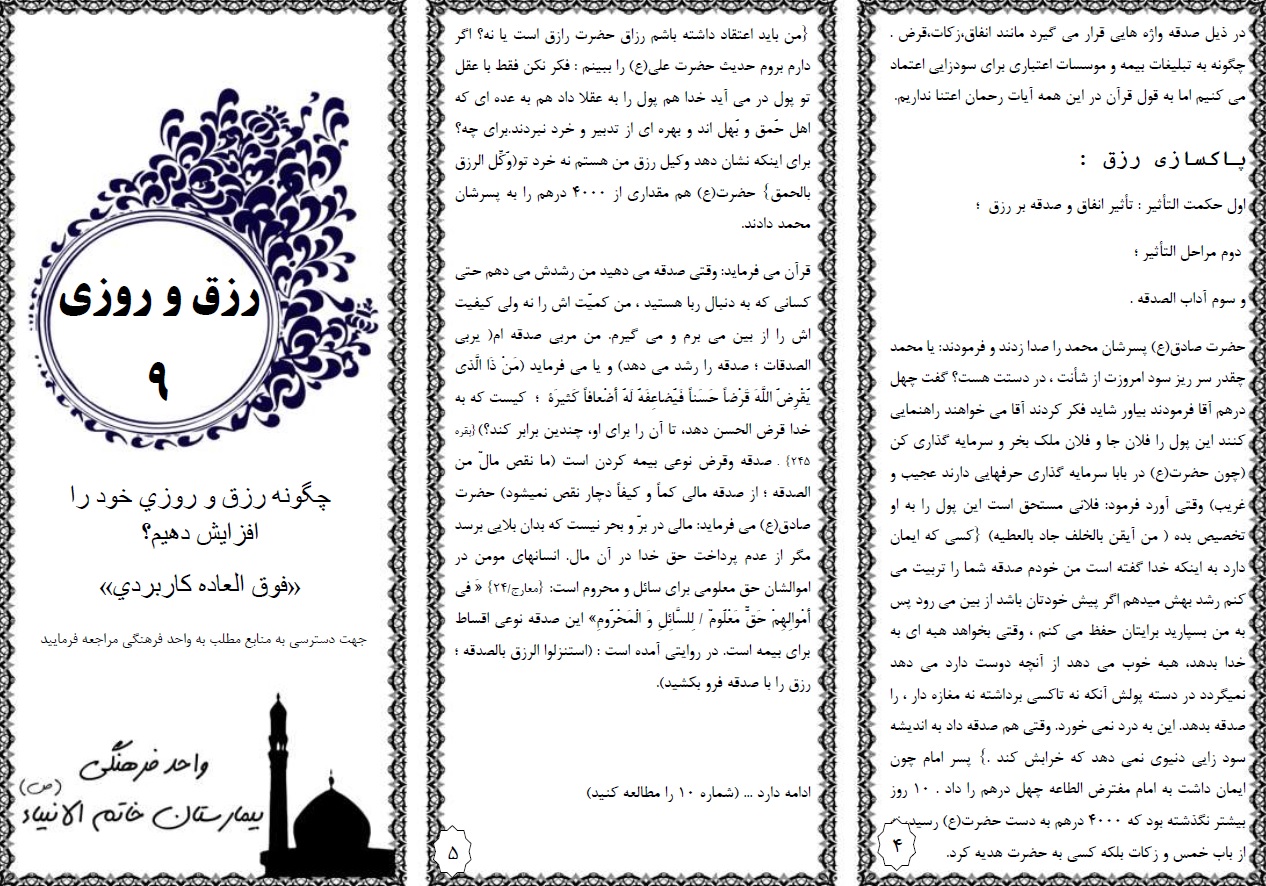 در ذیل صدقه واژه هایی قرار می گیرد مانند انفاق،زکات،قرض .
چگونه به تبلیغات بیمه و موسسات اعتباری برای سودزایی اعتماد
می کنیم اما به قول قرآن در این همه آیات رحمان اعتنا نداریم.
پاکسازی رزق :
اول حکمت التأثیر : تأثیر انفاق و صدقه بر رزق ؛
دوم مراحل التأثیر ؛
و سوم آداب الصدقه .
حضرت صادق(ع) پسرشان محمد را صدا زدند و فرمودند: یا محمد
چقدر سر ریز سود امروزت از شأنت ، در دستت هست؟ گفت چهل
درهم آقا فرمودند بیاور شاید فکر کردند آقا می خواهند راهنمایی
کنند این پول را فلان جا و فلان ملک بخر و سرمایه گذاری کن
(چون حضرت(ع) در بابا سرمایه گذاری حرفهایی دارند عجیب و
غریب) وقتی آورد فرمود: فلانی مستحق است این پول را به او
تخصیص بده ( من آیقن بالخلف جاد بالعطیه) {کسی که ایمان
دارد به اینکه خدا گفته است من خودم صدقه شما را تربیت می
کنم رشد بهش میدهم اگر پیش خودتان باشد از بین می رود پس
به من بسپارید برایتان حفظ می کنم ، وقتی بخواهد هبه ای به
خدا بدهد، هبه خوب می دهد از آنچه دوست دارد می دهد
نمیگردد در دسته پولش آنکه نه تاکسی برداشته نه مغازه دار ، را
صدقه بدهد. این به درد نمی خورد. وقتی هم صدقه داد به اندیشه
سود زایی دنیوی نمی دهد که خرابش کند .} پسر امام چون
ایمان داشت به امام مفترض الطاعه چهل درهم را داد . ۱۰ روز
بیشتر نگذشته بود که ۴۰۰۰ درهم به دست حضرت(ع) رسید
از باب خمس و زکات بلکه کسی به حضرت هدیه کرد.
۴
{من باید اعتقاد داشته باشم رزاق حضرت رازق است یا نه؟ اگر
دارم بروم حدیث حضرت علی(ع) را ببینم : فکر نکن فقط با عقل
تو پول در می آید خدا هم پول را به عقلا داد هم به عده ای که
اهل حُمق و بُهل اند و بهره ای از تدبیر و خرد نبردند.برای چه؟
برای اینکه نشان دهد وکیل رزق من هستم نه خرد تو(وُکِّل الرزق
بالحمق} حضرت(ع) هم مقداری از ۴۰۰۰ درهم را به پسرشان
محمد دادند.
قرآن می فرماید: وقتی صدقه می دهید من رشدش می دهم حتی
کسانی که به دنبال ربا هستید ، من کمیّت اش را نه ولی کیفیت
اش را از بین می برم و می گیرم. من مربی صدقه ام( یربی
الصدقات ؛ صدقه را رشد می دهد) و یا می فرماید (مَنْ ذَا الَّذی
یُقْرِضُ اللَّهَ قَرْضاً حَسَناً فَیُضاعِفَهُ لَهُ أَضْعافاً کَثیرَهً ؛ کیست که به
خدا قرض الحسن دهد، تا آن را برای او، چندین برابر کند؟){بقره
۲۴۵} . صدقه وقرض نوعی بیمه کردن است (ما نقص مالٌ من
الصدقه ؛ از صدقه مالی کماً و کیفاً دچار نقص نمیشود) حضرت
صادق(ع) می فرماید: مالی در برّ و بحر نیست که بدان بلایی برسد
مگر از عدم پرداخت حق خدا در آن مال. انسانهای مومن در
اموالشان حق معلومی برای سائل و محروم است: {معارج/۲۴} « فی
أَمْوالِهِمْ حَقٌّ مَعْلُومٌ / لِلسَّائِلِ وَ الْمَحْرُومِ» این صدقه نوعی اقساط
برای بیمه است. در روایتی آمده است : (استنزلوا الرزق بالصدقه ؛
رزق را با صدقه فرو بکشید).
ادامه دارد ... (شماره ۱۰ را مطالعه کنید)
۵
رزق و روزی
۹
چگونه رزق و روزي خود را
افزایش دهیم؟
«فوق العاده کاربردي»
جهت دسترسی به منابع مطلب به واحد فرهنگی مراجعه فرمایید
واحد فرهنگی
بیمارستان خاتم الانبیاء (ص)